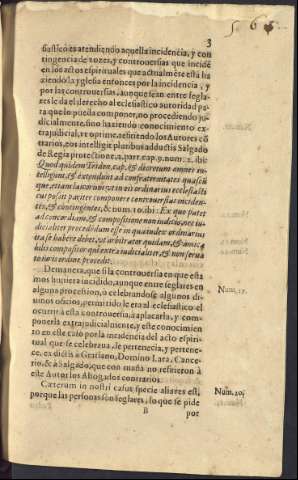 3
siastico es atendiendo aquella incidencia, y con
tingencia de vozes, y controuersias que inciden
en los actos espirituales que actualmẽte està ha
ziendo la yglesia entonces por la incidencia, y
por las controuersias, aunque sean entre segla-
res le da el derecho al eclesiastico autoridad pa-
ra que lo pueda componer, no procediendo ju-
dicialmente, sino haziendo conocimiento ex-
trajudicial, vt optime, refiriendo los Autores cõ
trarios, eos intelligit pluribus adductis Salgado
de Regia protectione, 2. part. cap. 9. num. 2. ibi:
Quod quidem Triden. cap. & decretum omnes in-
telligunt, & extendunt ad confraternitates quasuis
que, etiam laicorum vt in eis ordinarius ecclesiasti
cus possit pariter componere controuersias inciden-
tes, & contingentes, & num. 10. ibi: Ex quo patet
ad concordiam, & compositionem non iudicio, nec iu-
dicialiter procedendum esse in qua index ordinarius
ita se habere debet, vt arbitrator quidam, & amica
bilis compositor quæ extra iudicialiter, & non serua
to iuris ordine procedit.
De manera, que si la controuersia en que esta
mos huuiera incidido, aunque entre seglares en
alguna procession, o celebrandose algunos di-
uinos oficios, permitido le era al eclesiastico el
ocurrir à esta controuersia, à aplacarla, y com-
ponerla extrajudicialmente, y este conocimien
to en este caso por la incidencia del acto espiri-
tual que se celebraua, le pertenecia, y pertene-
ce, ex dictis à Gratiano, Domino Lara, Cance-
rio, & à Salgado, que con maña no refirieron à
este Autor los Abogados contrarios.
Num. 19.
Cæterum in nostri casus specie aliares est,
porque las personas son seglares, lo que se pide
Num. 20.
B
por